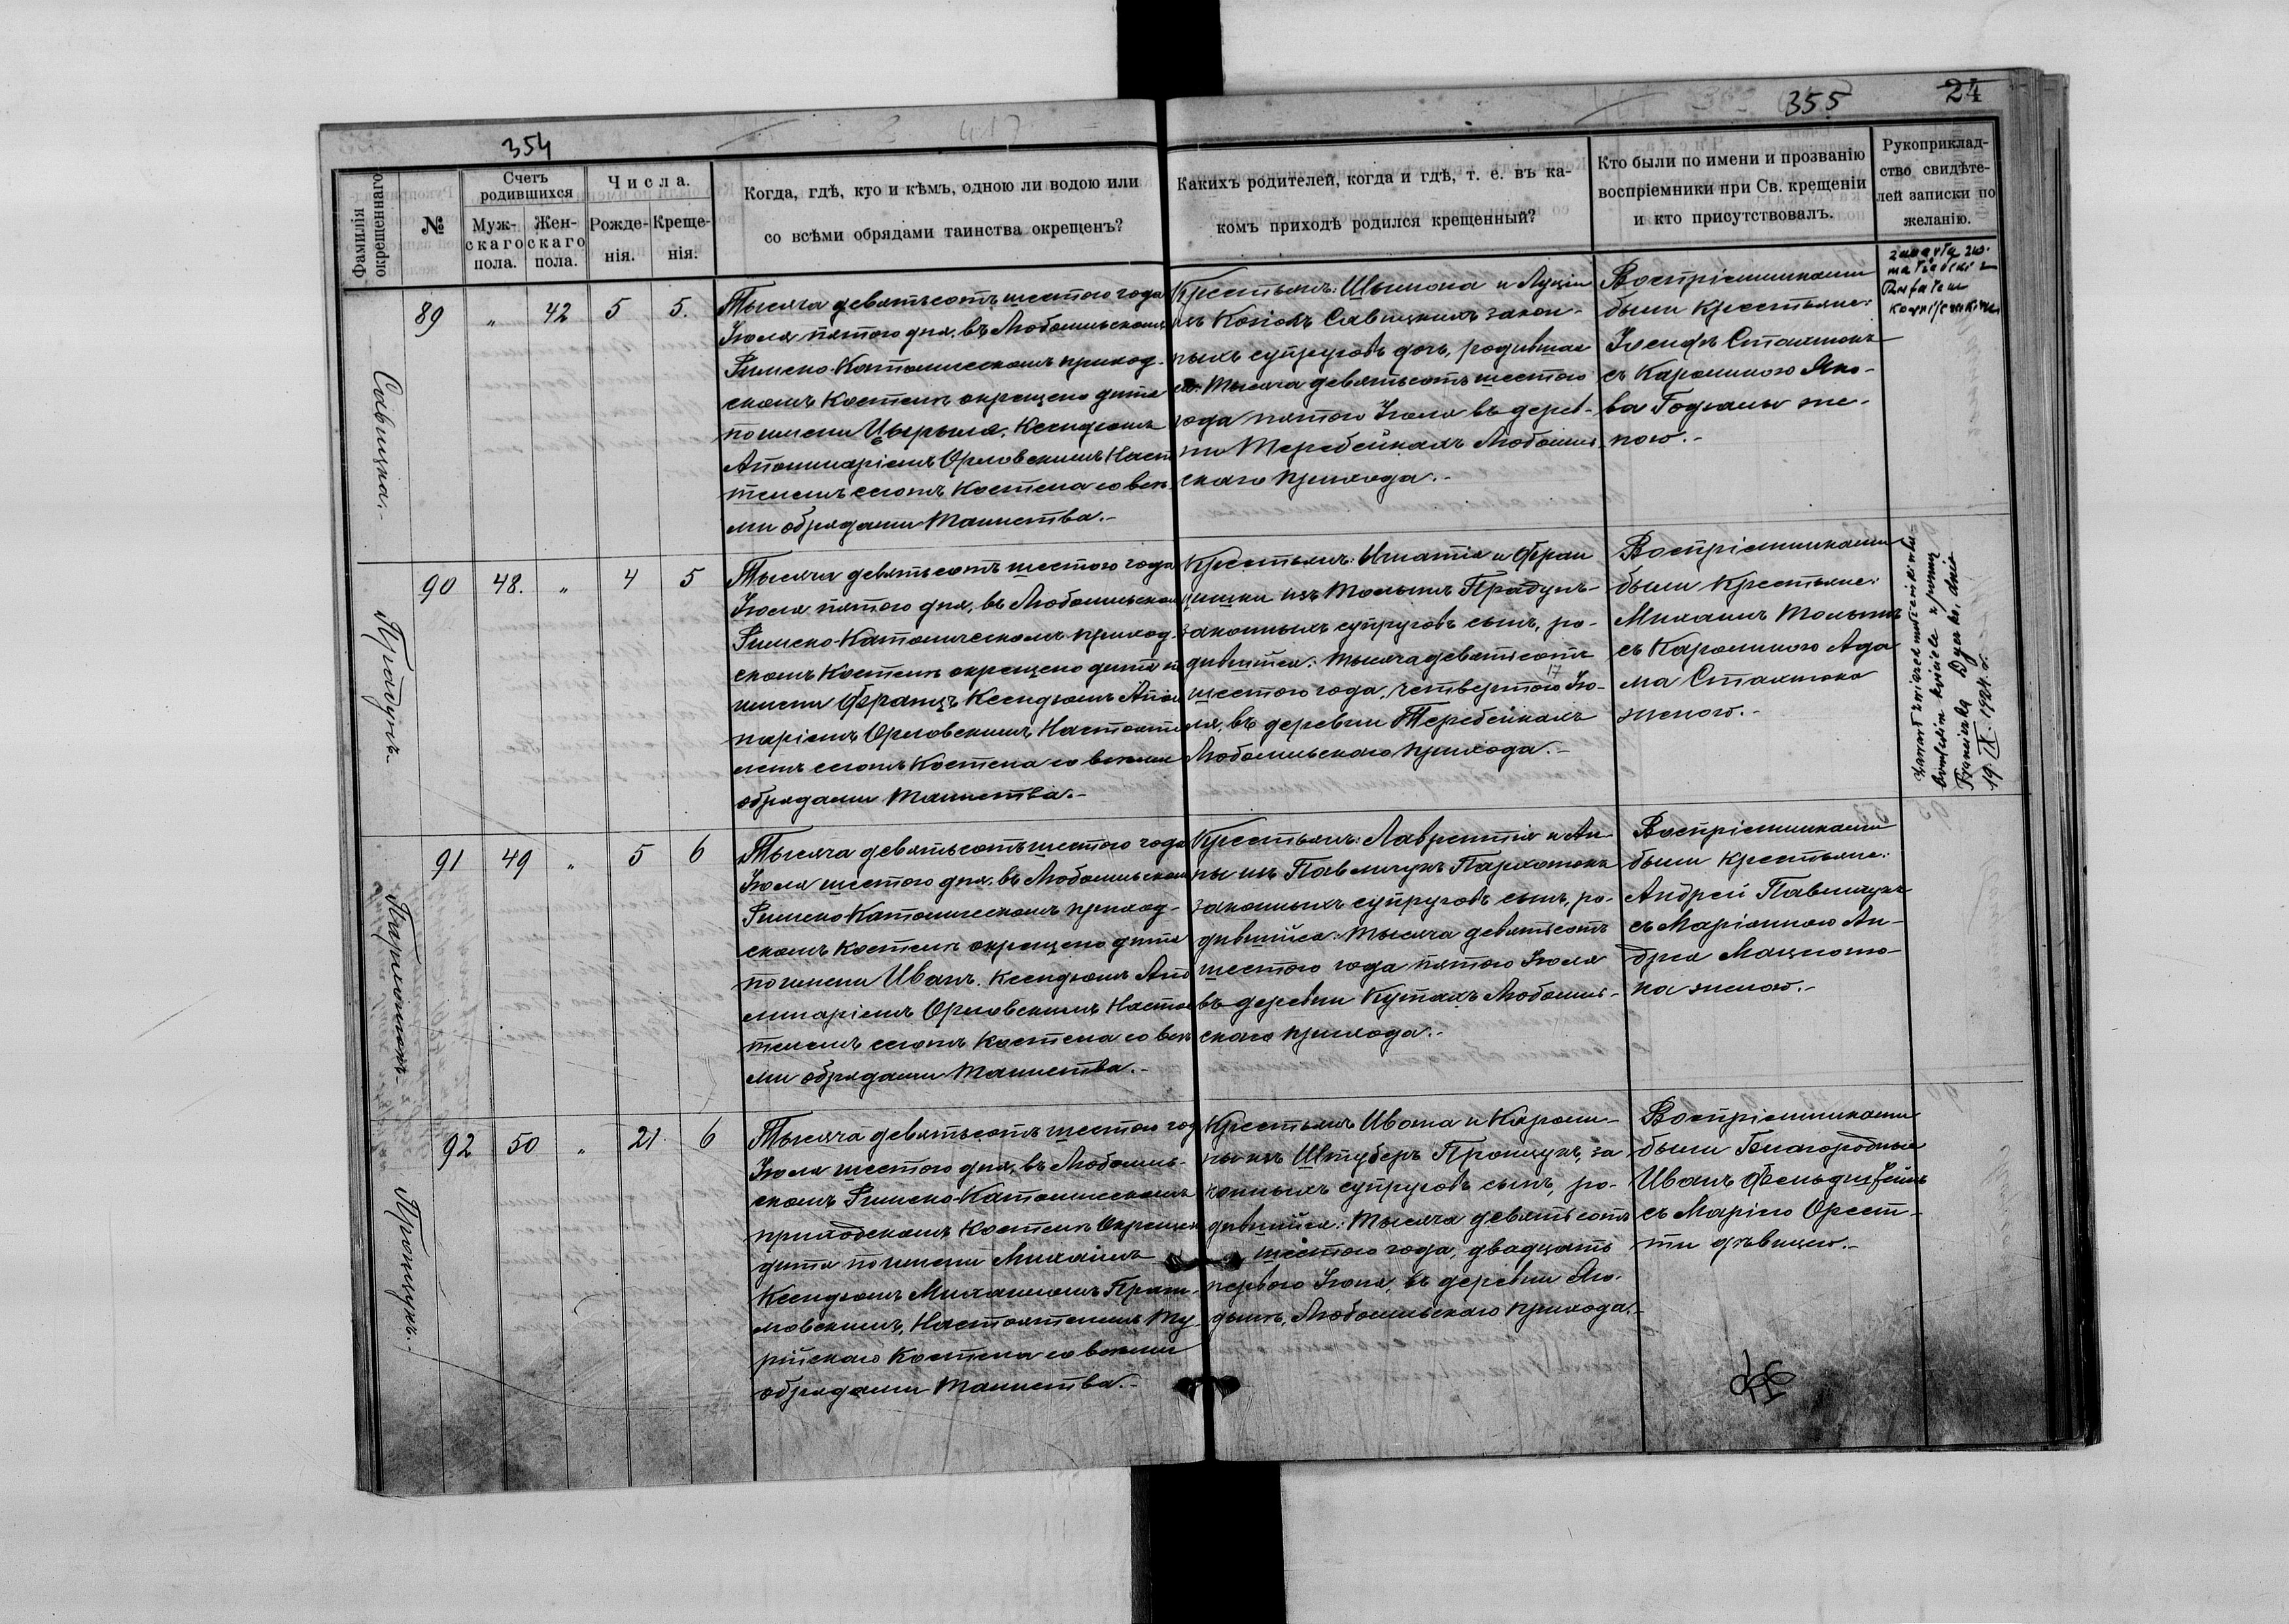 354
Фамилія окрещеннаго
№
Счетъ родившихся
Муж-
скаго
пола.
Жен-
скаго
пола.
Числа.
Рожде-
нія.
Креще-
нія.
Когда, гдѣ, кто и кѣмъ, одною ли водою или
со всѣми обрядами таинства окрещенъ?
355
24
Какихъ родителей, когда и гдѣ, т. е. въ ка-
комъ приходѣ родился крещенный?
Кто были по имени и прозванію
воспріемники при Св. крещеніи
и кто присутствовалъ.
Рукоприклад-
ство свидѣте-
лей записки по
желанію.
Савицка.-
89 " 42 5 5.
Тысяча девятьсотъ шестого года
Іюля пятого дня, въ Любомльскомъ
Римско-Католическомъ приход-
скомъ Костелѣ окрещено дитя
по имени Цырыля, Ксендзомъ
Аполинаріемъ Орловскимъ Насто
телемъ сего Костела со всѣ-
ми обрядами Таинства.-
Крестьянъ: Шымона и Луціи
изъ Копокъ Савицкихъ закон-
ныхъ супруговъ дочь, родившая
ся: Тысяча девятьсотъ шестого
года пятого Іюля въ дерев-
ни Теребейкахъ Любомль-
скаго прихода.-
Воспріемниками
были Крестьяне:
Іосифъ Стахнюкъ
съ Каролиною Яко-
ва Годзалы же-
ною.-
Прадунъ.
90 48. " 4 5
Тысяча девятьсотъ шестого года
Іюля пятого дня, въ Любомльскомъ
Римско-Католическомъ приход-
скомъ Костелѣ окрещено дитя по
имени Францъ Ксендзомъ Апол
наріемъ Орловскимъ Настояте
лемъ сего Костела со всѣми
обрядами Таинства.-
Крестьянъ: Игнатія и Фран
цишки изъ Полынь Прадунъ-
законныхъ супруговъ сынъ, ро-
дившійся: тысяча девятьсотъ
шестого года, четвертого 17 Ію-
ля, въ деревни Теребейкахъ
Любомльскаго прихода.-
Воспріемниками
были Крестьяне:
Михаилъ Полынь
съ Каролиною Ада
ма Стахнюка
женою.-
Franciszką
19. IX. 1924 r.
Пархомюкъ-
91 49 " 5 6
Тысяча девятьсотъ шестого года
Іюля шестого дня, въ Любомльскомъ
Римско Католическомъ приход-
скомъ Костелѣ окрещено дитя
по имени Иванъ. Ксендзомъ Апо
линаріемъ Орловскимъ Насто
телемъ сего Костела со всѣ
ми обрядами Таинства.-
Крестьянъ: Лаврентія и Ан
ны изъ Павлючукъ Пархомюкъ
законныхъ супруговъ сынъ, ро-
дившійся: Тысяча девятьсотъ
шестого года пятого Іюля
въ деревни Кутахъ Любомль-
скаго прихода.-
Воспріемниками
были Крестьяне:
Андрей Павлючукъ
съ Маріанною Ан-
дрея Мацюню-
ка женою.-
Процукъ.-
92 50 " 21. 6
Тысяча девятьсотъ шестого год
Іюля шестого дня, въ Любомль-
скомъ Римско-Католическомъ
приходскомъ Костелѣ Окрещен
дитя по имени Михаилъ
Ксендзомъ Михаиломъ
Настоятелемъ Ту
рійскаго Костела со всѣми
обрядами Таинства.-
Крестьянъ Ивана и Кароли-
ны изъ Штуберъ Процукъ, за
конныхъ супруговъ сынъ, ро-
дившійся: Тысяча девятьсотъ
шестого года, двадцать
первого Іюня, въ деревни Яго-
дынѣ, Любомльскаго прихода.-
Воспріемниками
были Благородные
Иванъ
съ Маріею Орест-
ти дѣвицею.-